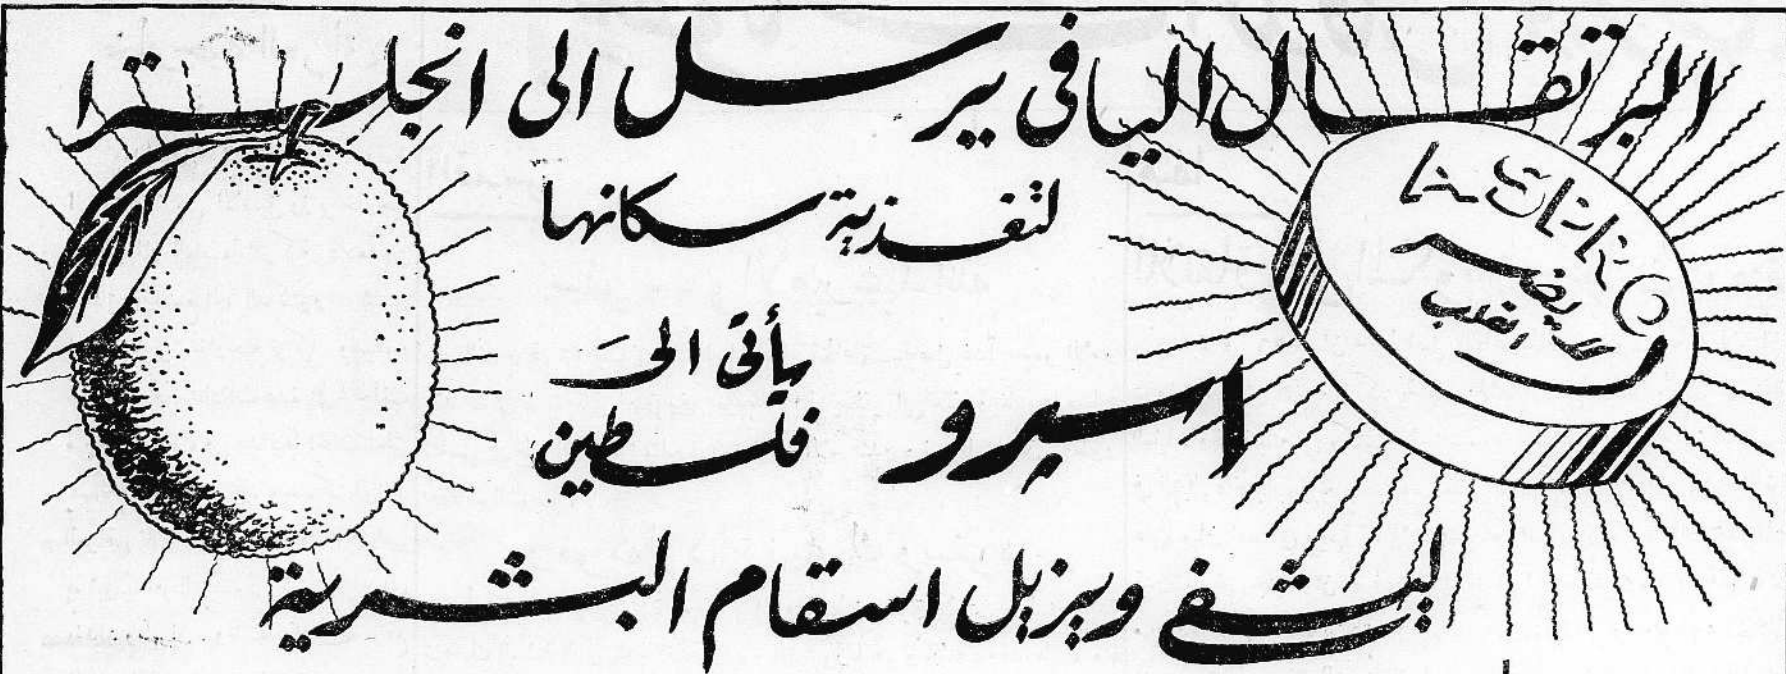 البرتقال اليافى يرسل الى انجلترا
لتغذية سكانها
اسبرو يأتى الى فلسطين
ليشفي ويزيل اسقام البشرية
لا يضر
القلب